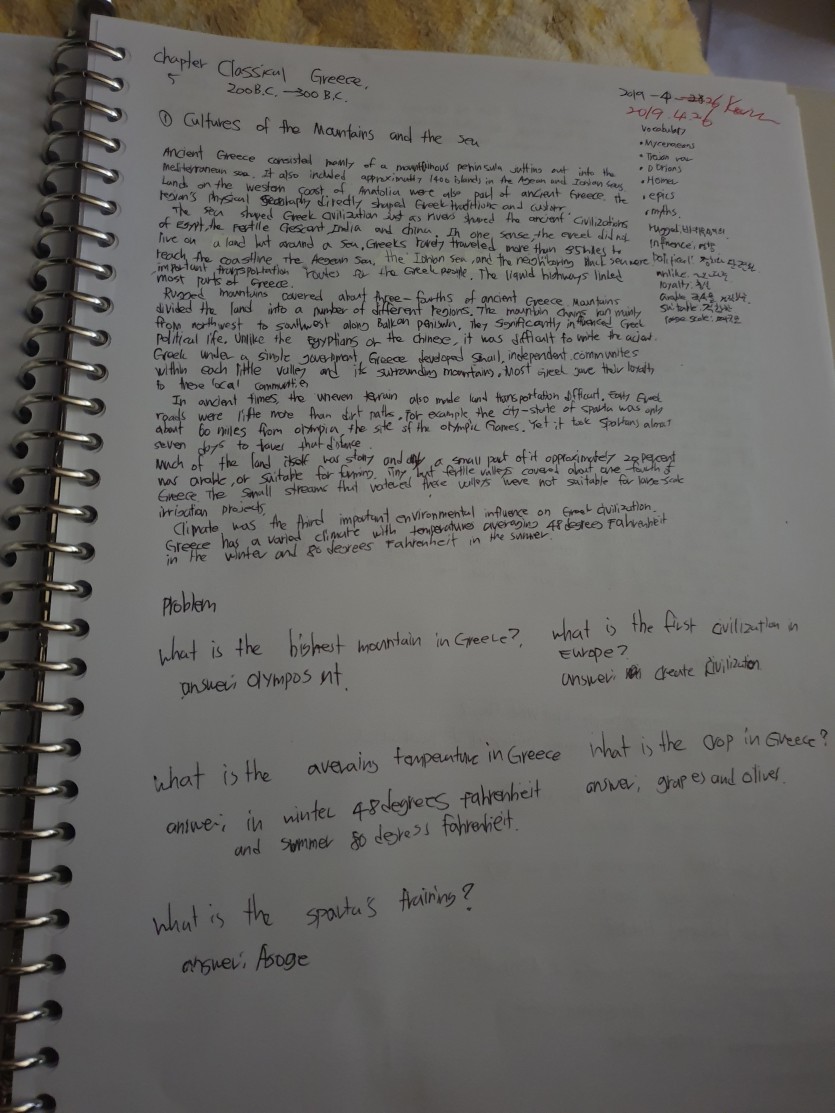 Chapter 5 Classical Greece.
200B.C. → 300 B.C.
2019-4-26
2019.4.26
① Cultures of the Mountains and the sea
Ancient Greece consisted mainly of a mountainous peninsula jutting out into the
Mediterranean sea. It also included approximatly 1400 islands in the Agean and Ionian seas.
Lands on the western coast of Anatolia were also part of ancient Greece. the
region's physical geography directly shaped Greek traditions and custom
The sea shaped Greek civilization just as rivers shaped the ancient civilizations
of Egypt, the Fertile Crescent, India and china. In one sense, the Greek did not
live on a land but around a sea, Greeks rarely traveled more than 85 miles to
reach the coastline. The Aegean Sea, the Ionian sea, and the neighboring Black sea were
important transportation routes for the Greek people. The liquid highways linked
most parts of Greece.
Rugged mountains covered about three-fourths of ancient Greece. Mountains
divided the land into a number of different regions. The mountain chains ran mainly
from northwest to southwest along Balkan penisula. They significantly influenced Greek
Political life. Unlike the Egyptians or the chinese, it was difficult to unite the
Greek under a single government, Greece developed small, independent, communites
within each little valley and its surrounding mountains. Most Greek gave their loyalty
to these local communities
In ancient times, the uneven terrain also made land transportation difficult, Early Greek
roads were little more than dirt paths, For example the city-state of sparta was only
about 60 miles from olympia, the site of the olympic Games. Yet it took Spartans almost
seven days to travel that distance.
Much of the land itself was stony and only a small part of it approximately 20 percent
was arable, or suitable for farming. Tiny but fertile valleys covered about one-fourth of
Greece. The small streams that watered these valleys were not suitable for large-scale
irrigation projects.
Climate was the third important environmental influence on Greek civilization.
Greece has a varied climate with temperatures averaging 48 degrees Fahrenheit
in the winter and 80 degrees Fahrenheit in the summer.
Vocabulary
• Mycenaeans
• Trojan war
• Dorians
• Homer
• epics
• myths.
rugged:
Influence:
political:
unlike:
loyalty: 충성
arable:
suitable:
large scale:
Problem
what is the highest mountain in Greece?
answer: olympos mt.
what is the first civilization in
Europe?
answer: create civilization
what is the averaing tempeurture in Greece
answer: in winter 48 degrees Fahrenheit
and summer 80 degress fahrenheit.
what is the crop in Greece?
answer: grapes and olives.
what is the sparta's training?
answer: Agoge